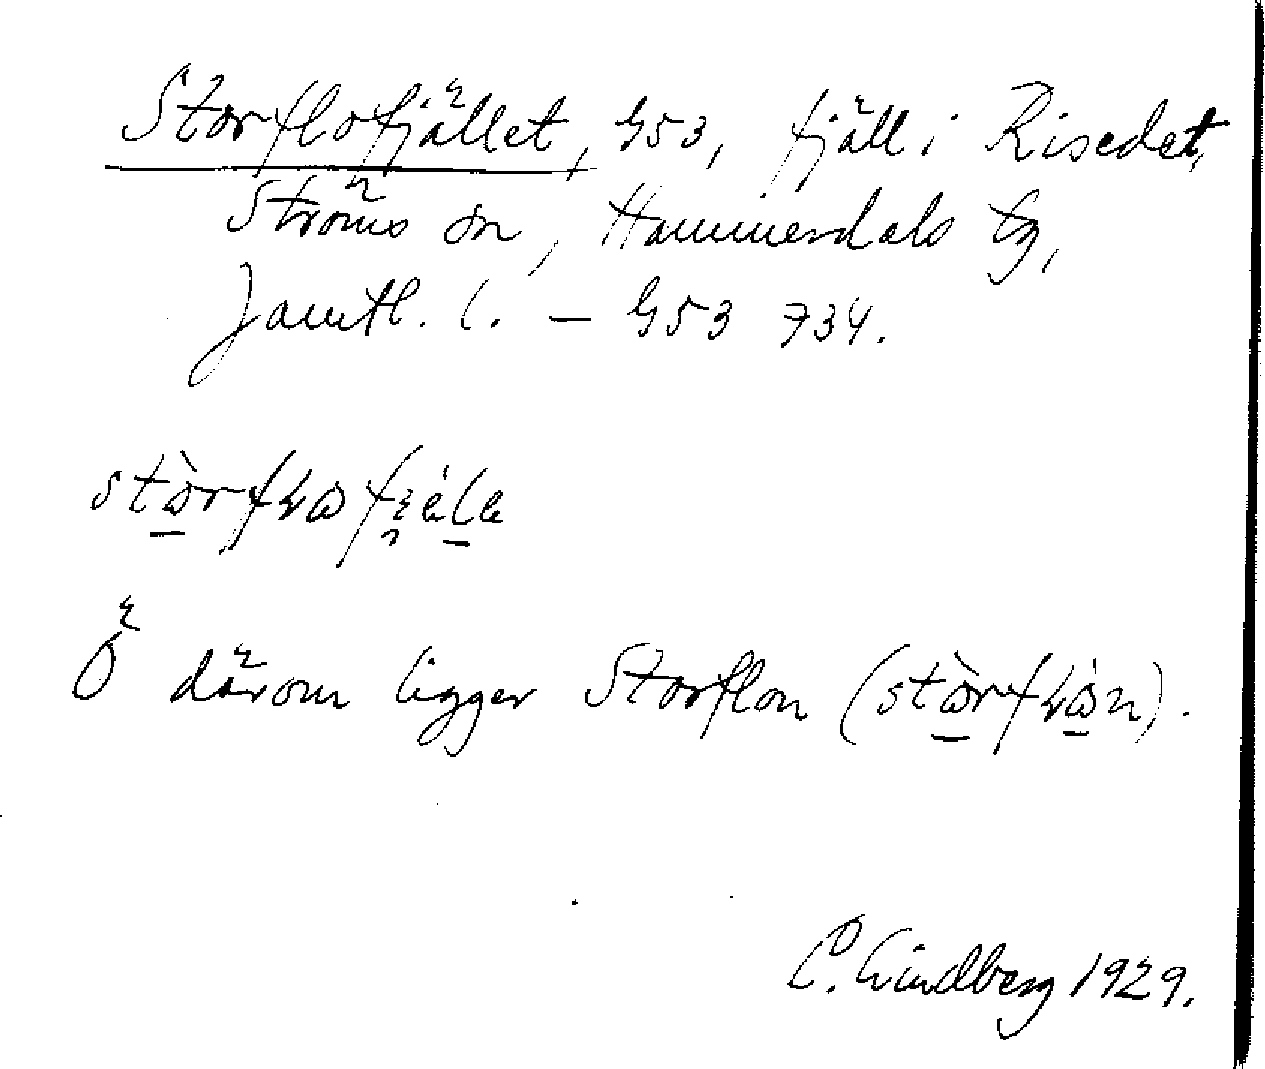 Storflofjället, G53, fjäll i Risedet,
Ströms sn, Hammerdals tg,
Jämtl. l. – G53 734.
Ö därom ligger Storflon
C. Lindberg 1929.